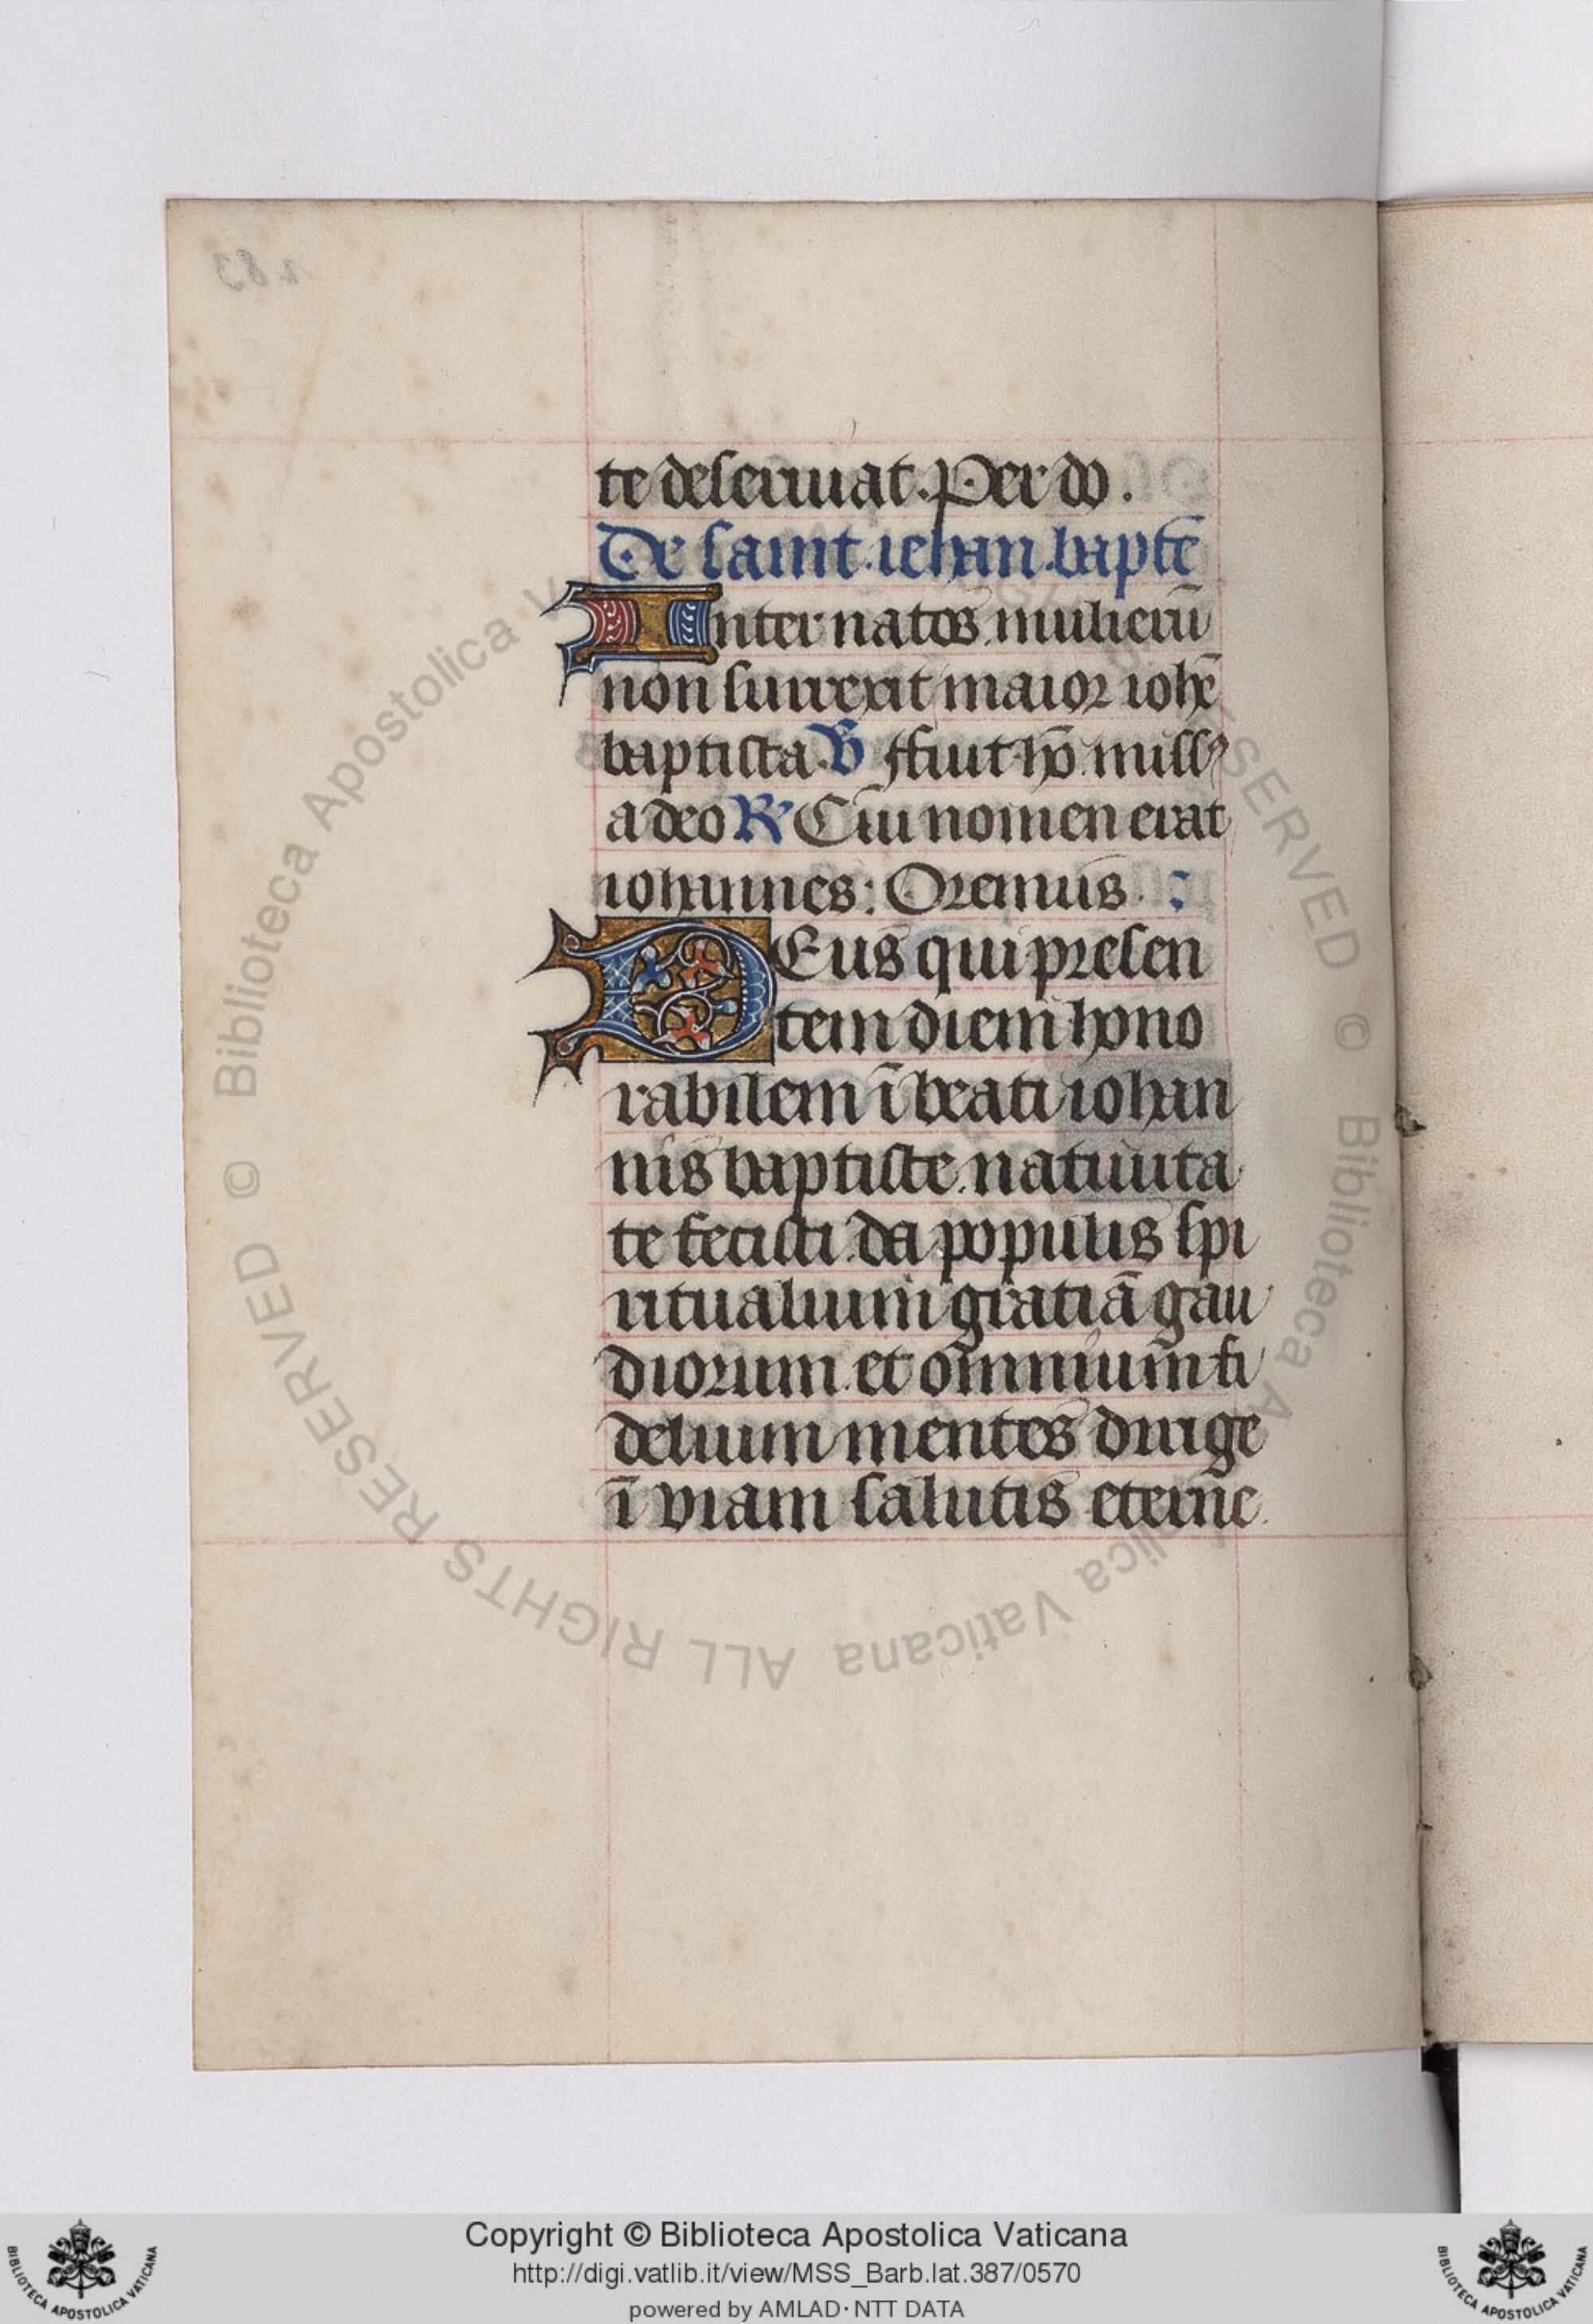 te deseruiat. Per do.
De saint iehan bapte
Inter natos mulierū
non surrexit maior iohē
baptista. V Ffuit hō miss9
a deo R Cui nomen erat
iohannes: Oremus.
DEus qui presen
tem diem hono
rabilem ī beati iohan
nis baptiste natiuita
te fecisti da populis spi
ritualium gratiā gau
diorum et omnium fi
delium mentes dirige
ī viam salutis eterne
© Biblioteca Apostolica Vaticana ALL RIGHTS RESERVED
Copyright © Biblioteca Apostolica Vaticana
http://digi.vatlib.it/view/MSS_Barb.lat.387/0570
powered by AMLAD · NTT DATA
BIBLIOTECA APOSTOLICA VATICANA
BIBLIOTECA APOSTOLICA VATICANA